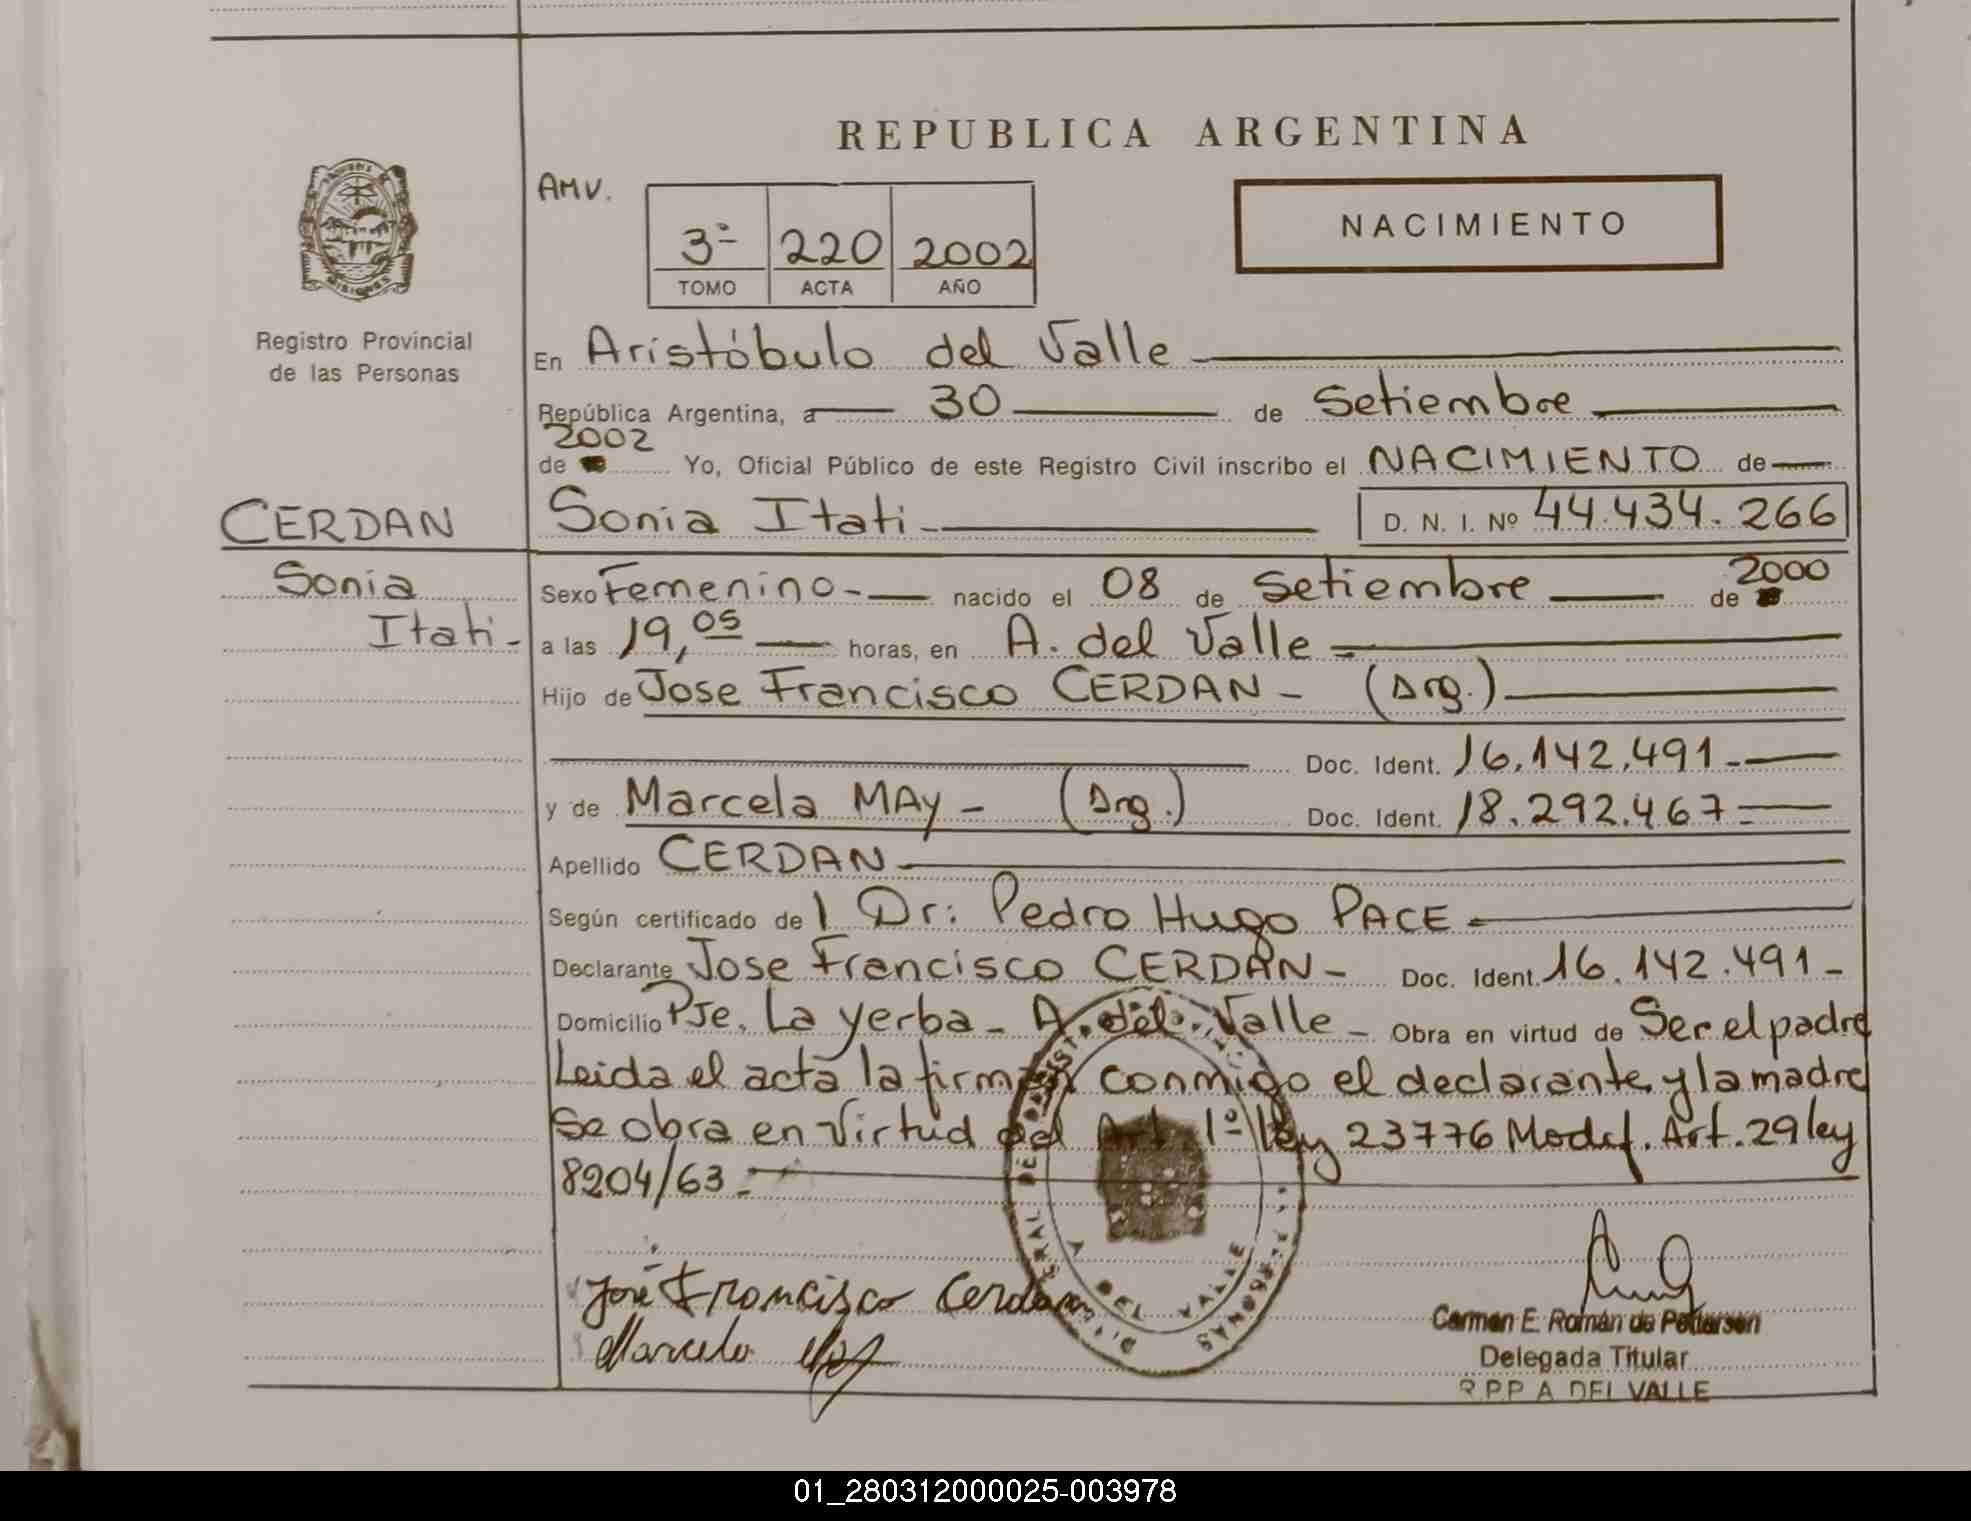 REPUBLICA ARGENTINA
AMV.
3º 220 2002
TOMO ACTA AÑO
NACIMIENTO
MISIONES
Registro Provincial
de las Personas
En Aristóbulo del Valle
República Argentina, a 30 de Setiembre
2002
de Yo, Oficial Público de este Registro Civil inscribo el NACIMIENTO de
CERDAN Sonia Itati D. N. I. Nº 44.434.266
Sonia
Itati
Sexo Femenino nacido el 08 de Setiembre de 2000
a las 19,05 horas, en A. del Valle
Hijo de Jose Francisco CERDAN - (Arg.)
Doc. Ident. 16.142.491
y de Marcela MAY - (Arg.) Doc. Ident. 18.292.467
Apellido CERDAN
Según certificado de l Dr: Pedro Hugo PACE
Declarante Jose Francisco CERDAN - Doc. Ident. 16.142.491 -
Domicilio Pje. La yerba - A. del Valle - Obra en virtud de Ser el padre
Leida el acta la firman conmigo el declarante y la madre
se obra en virtud del Art. 1º ley 23776 Modif. Art. 29 ley
8204/63.-
José Francisco Cerdan
Marcela May
A DEL VALLE
Carmen E. Román de Pettersen
Delegada Titular
R.P.P. A DEL VALLE
01_280312000025-003978